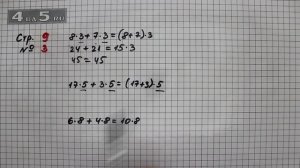 4a5.ru
Стр. 9
№ 3
8·3+7·3=(8+7)·3
24+21=15·3
45=45
17·5+3·5=(17+3)·5
6·8+4·8=10·8